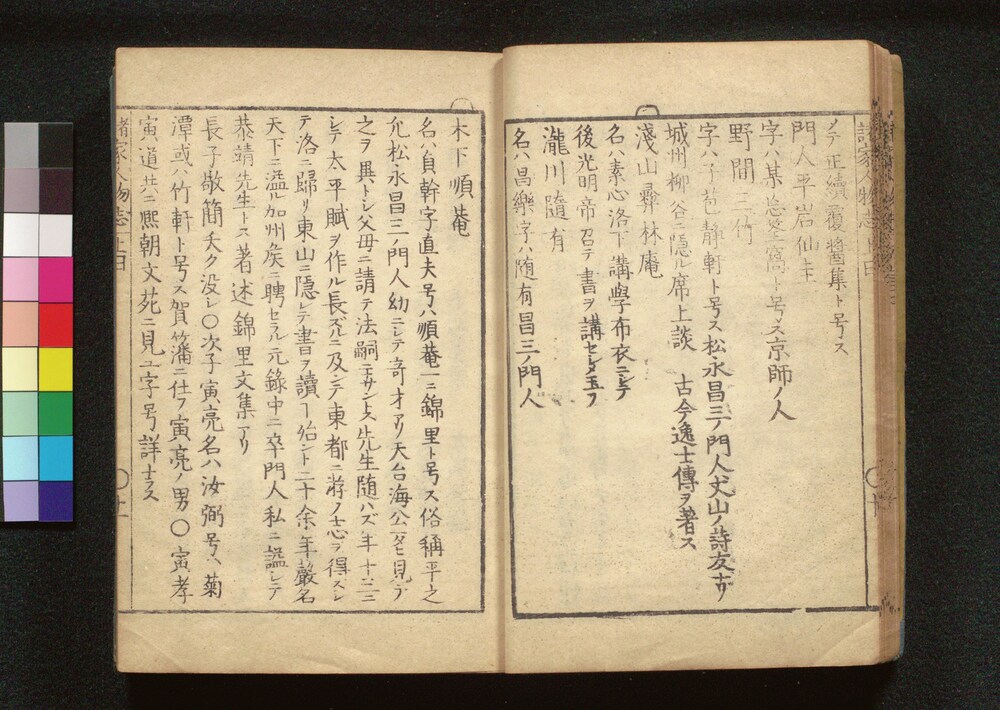 諸家人物志上曰
ノ子正續覆醬集ト号ス
門人平岩仙圭
字ハ某忘筌窩ト号ス京師ノ人
野間三竹
字ハ子苞靜軒ト号ス松永昌三ノ門人丈山ノ詩友ナリ
城州柳谷ニ隠ル席上談 古今逸士傳ヲ著ス
淺山彝林庵
名ハ素心洛下ニ講學布衣ニシテ
後光明帝召テ書ヲ講セシメ玉フ
瀧川随有
名ハ昌樂字ハ随有昌三ノ門人
木下順菴
名ハ貞幹字直夫号ハ順菴一ニ錦里ト号ス俗稱平之
允松永昌三ノ門人幼ニシテ竒才アリ天台海公之ヲ見テ
之ヲ異トシ父母ニ請テ法嗣ニナサントス先生随ハズ年十三ニ
シテ太平賦ヲ作ル長ズルニ及ンテ東都ニ游ノ志ヲ得スシ
テ洛ニ歸リ東山ニ隠レテ書ヲ讀ヿ殆ント二十余年嚴名
天下ニ溢ル加州矦ニ聘セラル元録中ニ卒門人私ニ謚シテ
恭靖先生トス著述錦里文集アリ
長子敬簡夭ク没シ〇次子寅亮名ハ汝弼号ハ菊
潭或ハ竹軒ト号ス賀藩ニ仕フ寅亮ノ男〇寅孝
寅道共ニ熙朝文苑ニ見ユ字号詳ニセス
諸家人物志上曰
〇十一